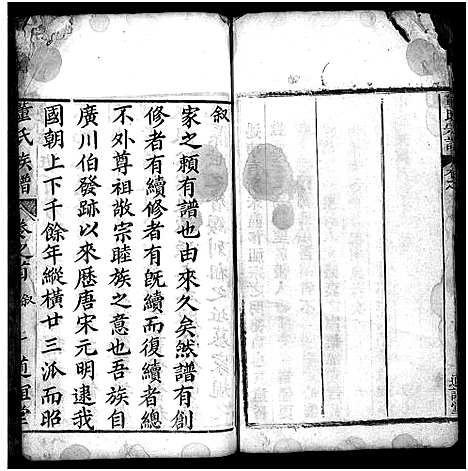 敘
家之賴有譜也由來久矣然譜有創
修者有續修者有旣續而復續者總
不外尊祖敬宗睦族之意也吾族自
廣川伯發跡以來歷唐宋元明逮我
國朝上下千餘年縱橫廿三派而昭
董氏族譜 卷之首 敘 一 道誼堂